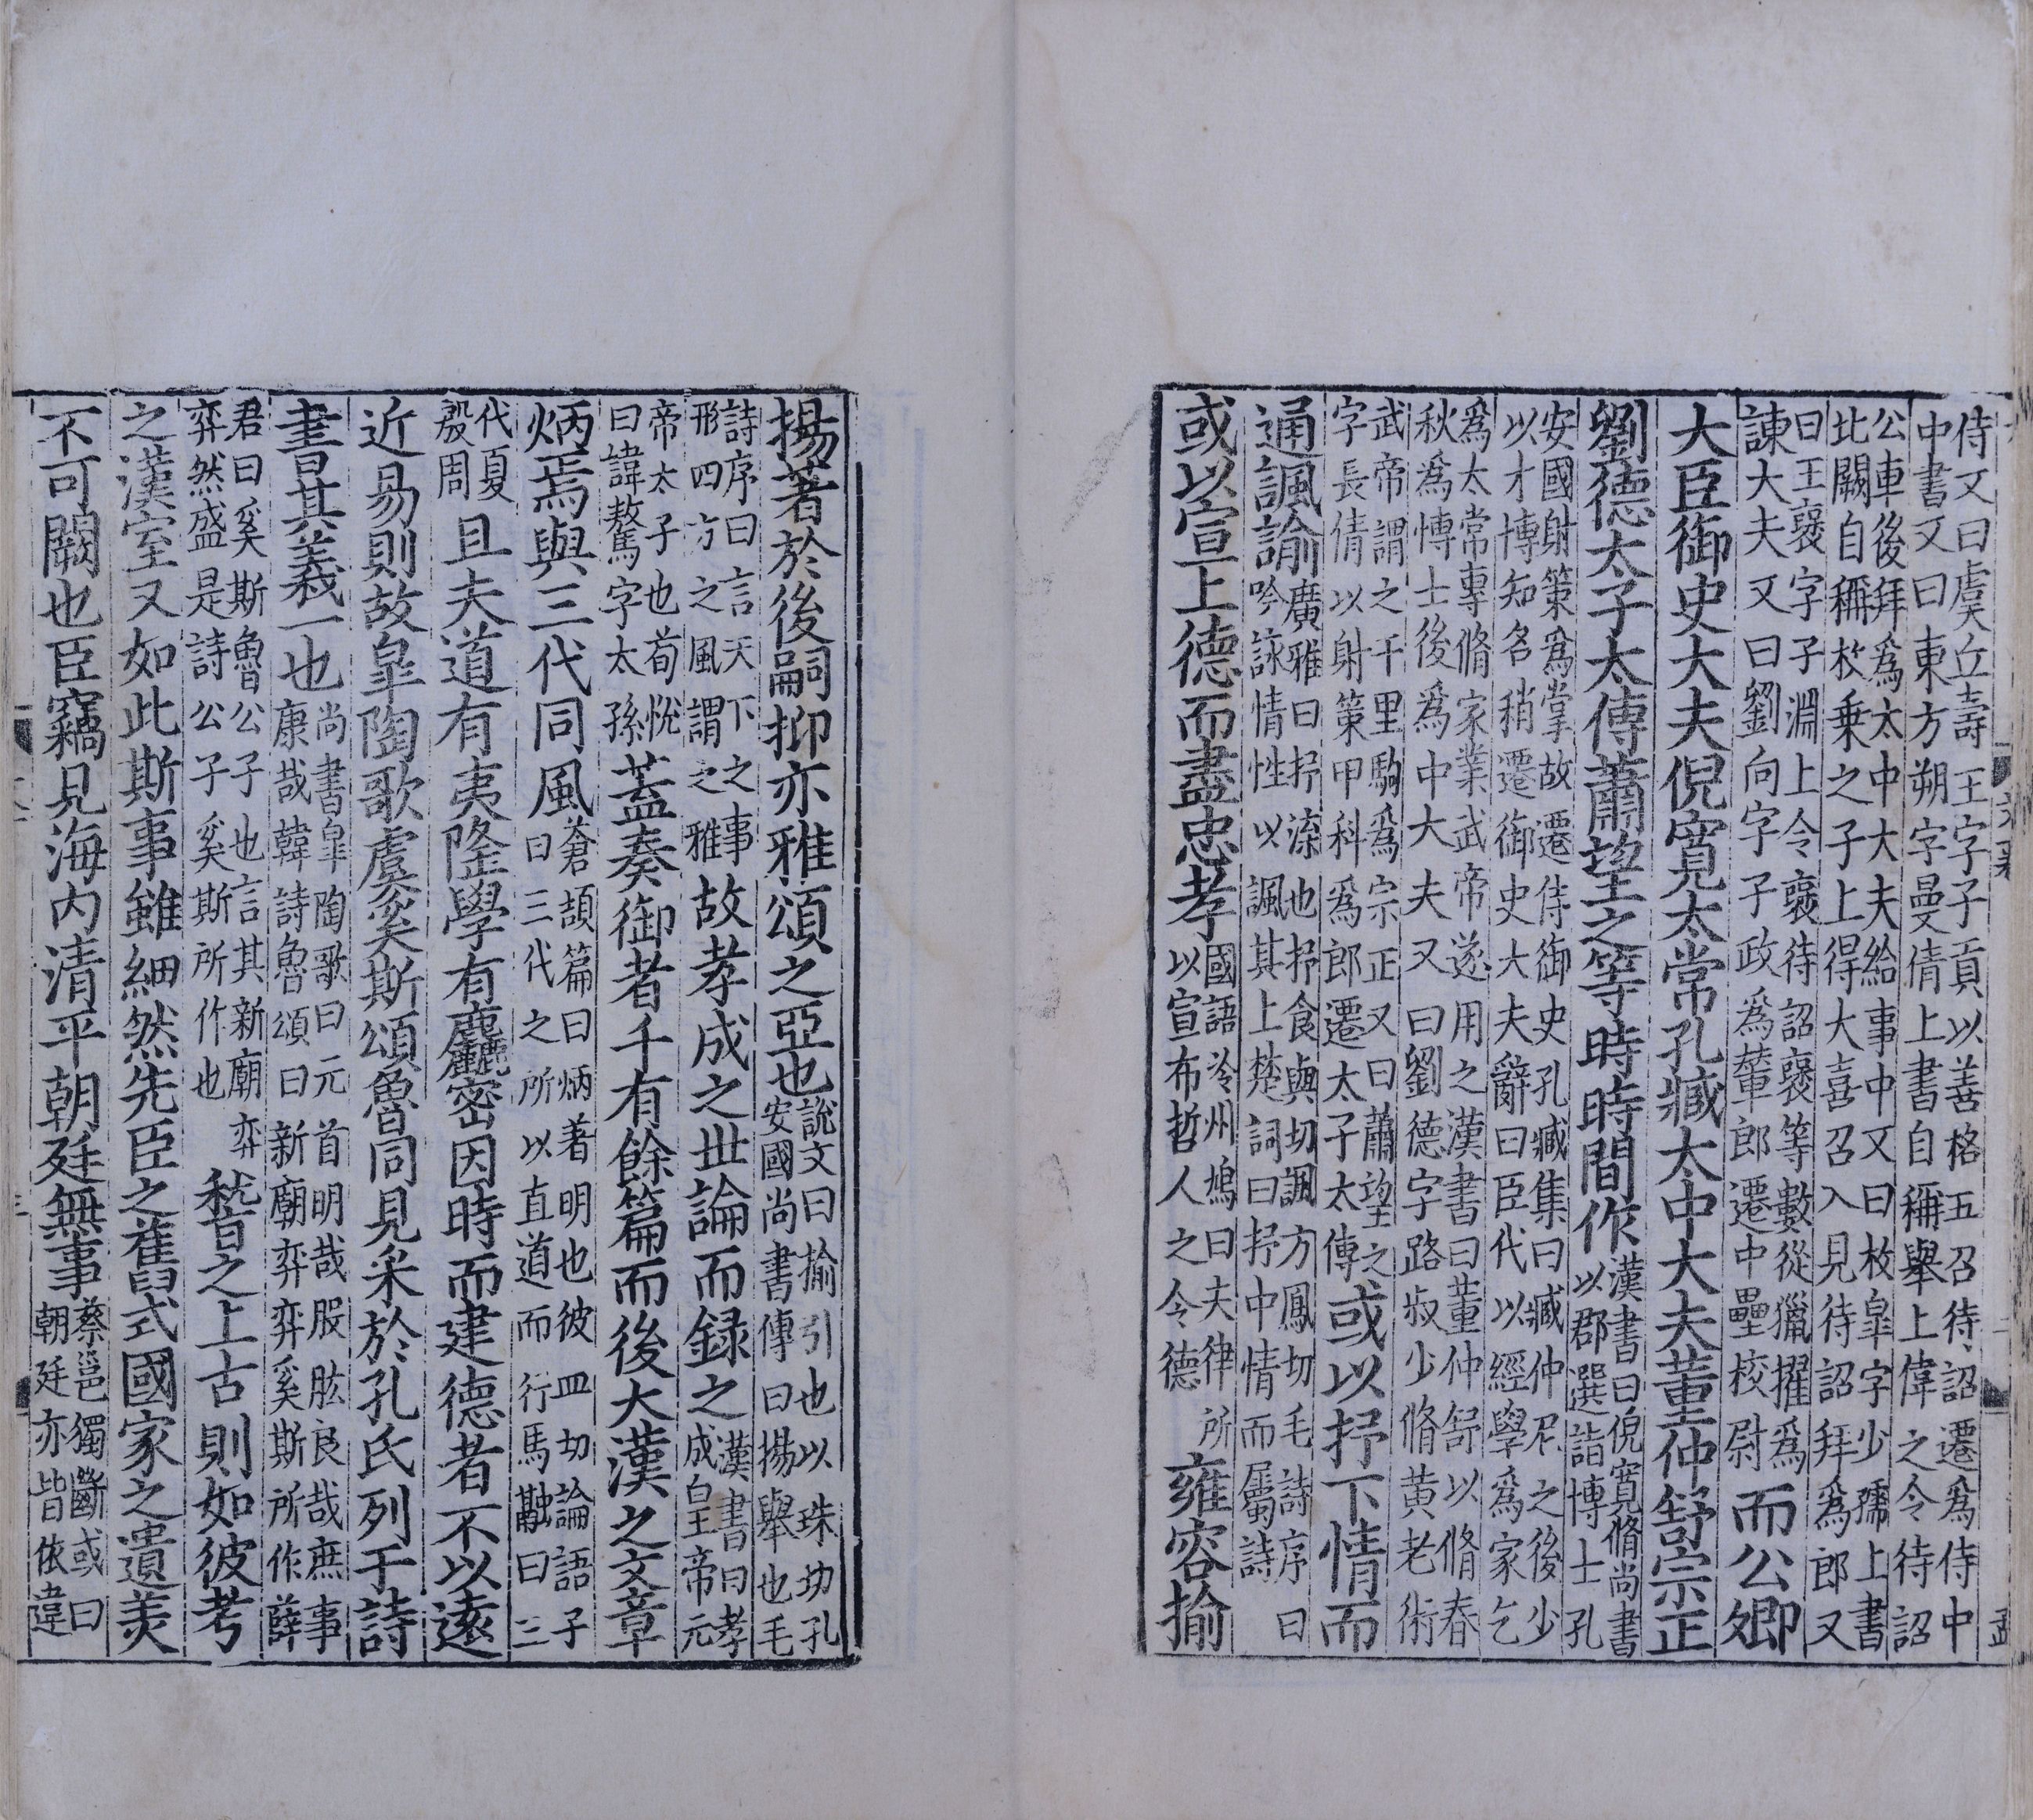 侍又曰虞丘壽王字子貢以善格五召待詔遷爲侍中
中書又曰東方朔字曼倩上書自稱舉上偉之令待詔
公車後拜爲太中大夫給事中又曰枚臯字少孺上書
北闕自稱枚乗之子上得大喜召入見待詔拜爲郎又
曰王襃字子淵上令襃待詔襃等數從獵擢爲
諫大夫又曰劉向字子政爲輦郎遷中壘校尉而公卿
大臣御史大夫倪寛太常孔臧太中大夫董仲舒宗正
劉德太子太傅蕭望之等時時間作漢書曰倪寛脩尚書
以郡選詣博士孔
安國射策爲掌故遷侍御史孔臧集曰臧仲尼之後少
以才博知名稍遷御史大夫辭曰臣代以經學爲家乞
爲太常專脩家業武帝遂用之漢書曰董仲舒以脩春
秋爲博士後爲中大夫又曰劉德字路叔少脩黄老術
武帝謂之千里駒爲宗正又曰蕭望之
字長倩以射策甲科爲郎遷太子太傅或以抒下情而
通諷諭廣雅曰抒渫也抒食與切諷方鳳切毛詩序曰
吟詠情性以諷其上楚詞曰抒中情而屬詩
或以宣上德而盡忠孝國語泠州鳩曰夫律所
以宣布哲人之令德雍容揄
揚著於後嗣抑亦雅頌之亞也說文曰揄引也以珠切孔
安國尚書傳曰揚舉也毛
詩序曰言天下之事
形四方之風謂之雅故孝成之世論而録之漢書曰孝
成皇帝元
帝太子也荀悅
曰諱驁字太孫蓋奏御者千有餘篇而後大漢之文章
炳焉與三代同風蒼頡篇曰炳著明也彼皿切論語子
曰三代之所以直道而行馬融曰三
代夏
殷周且夫道有夷隆學有麤密因時而建德者不以遠
近易則故臯陶歌虞奚斯頌魯同見采於孔氏列于詩
書其義一也尚書臯陶歌曰元首明哉股肱良哉庶事
康哉韓詩魯頌曰新廟弈弈奚斯所作薛
君曰奚斯魯公子也言其新廟弈
弈然盛是詩公子奚斯所作也稽之上古則如彼考
之漢室又如此斯事雖細然先臣之舊式國家之遺美
不可闕也臣竊見海内清平朝廷無事蔡邕獨斷或曰
朝廷亦皆依違